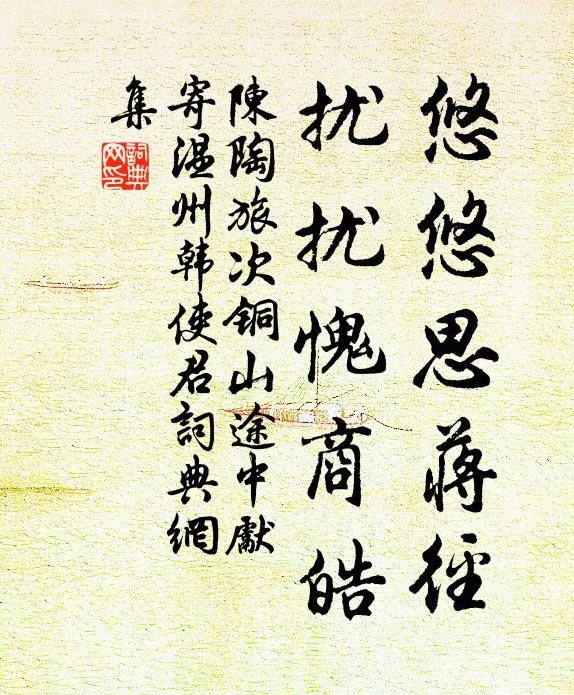 悠悠思蒋径
扰扰愧商皓
陳陶旅次铜山途中獻
寄温州韩使君詞典網
集
詞典网印